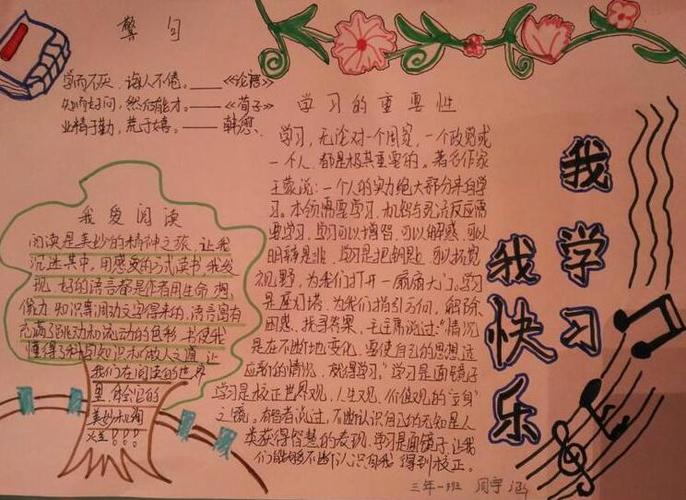 警句
学而不厌,诲人不倦。——《论语》
知而好问,然后能才。——《荀子》
业精于勤,荒于嬉。——韩愈
学习的重要性
学习,无论对一个国家,一个政党或
一个人,都是极其重要的。著名作家
王蒙说:一个人的实力绝大部分来自学
习。本领需要学习,机智与灵活反应需
要学习,学习可以增智,可以解惑,可以
明辨是非,学习是把钥匙,
视野,为我们打开一扇扇大门。学习
是座灯塔,为我们指引方向,解除
困惑,找寻答案,毛主席说过:"情况
是在不断地变化,要使自己的思想适
应新的情况,就得学习。"学习是面镜子
学习是校正世界观,人生观,价值观的"立身"
之镜,有智者说过,不断认识自己的无知是人
类获得智慧的表现,学习是面镜子,让我
们能够不断认识自我,得到校正。
我爱阅读
阅读是美妙的精神之旅,让我
沉迷其中,用感受的方式读书,我发
现,好的语言都是作者用生命,想
像力,知识等间动文字得来的,语言富有
充满了跳动和流动的色彩,书使我
懂得了科学知识和做人之道,让
我们在阅读的世界
里,体会它的
美妙和陶
三年一班 周宇涵
我学习
我快乐